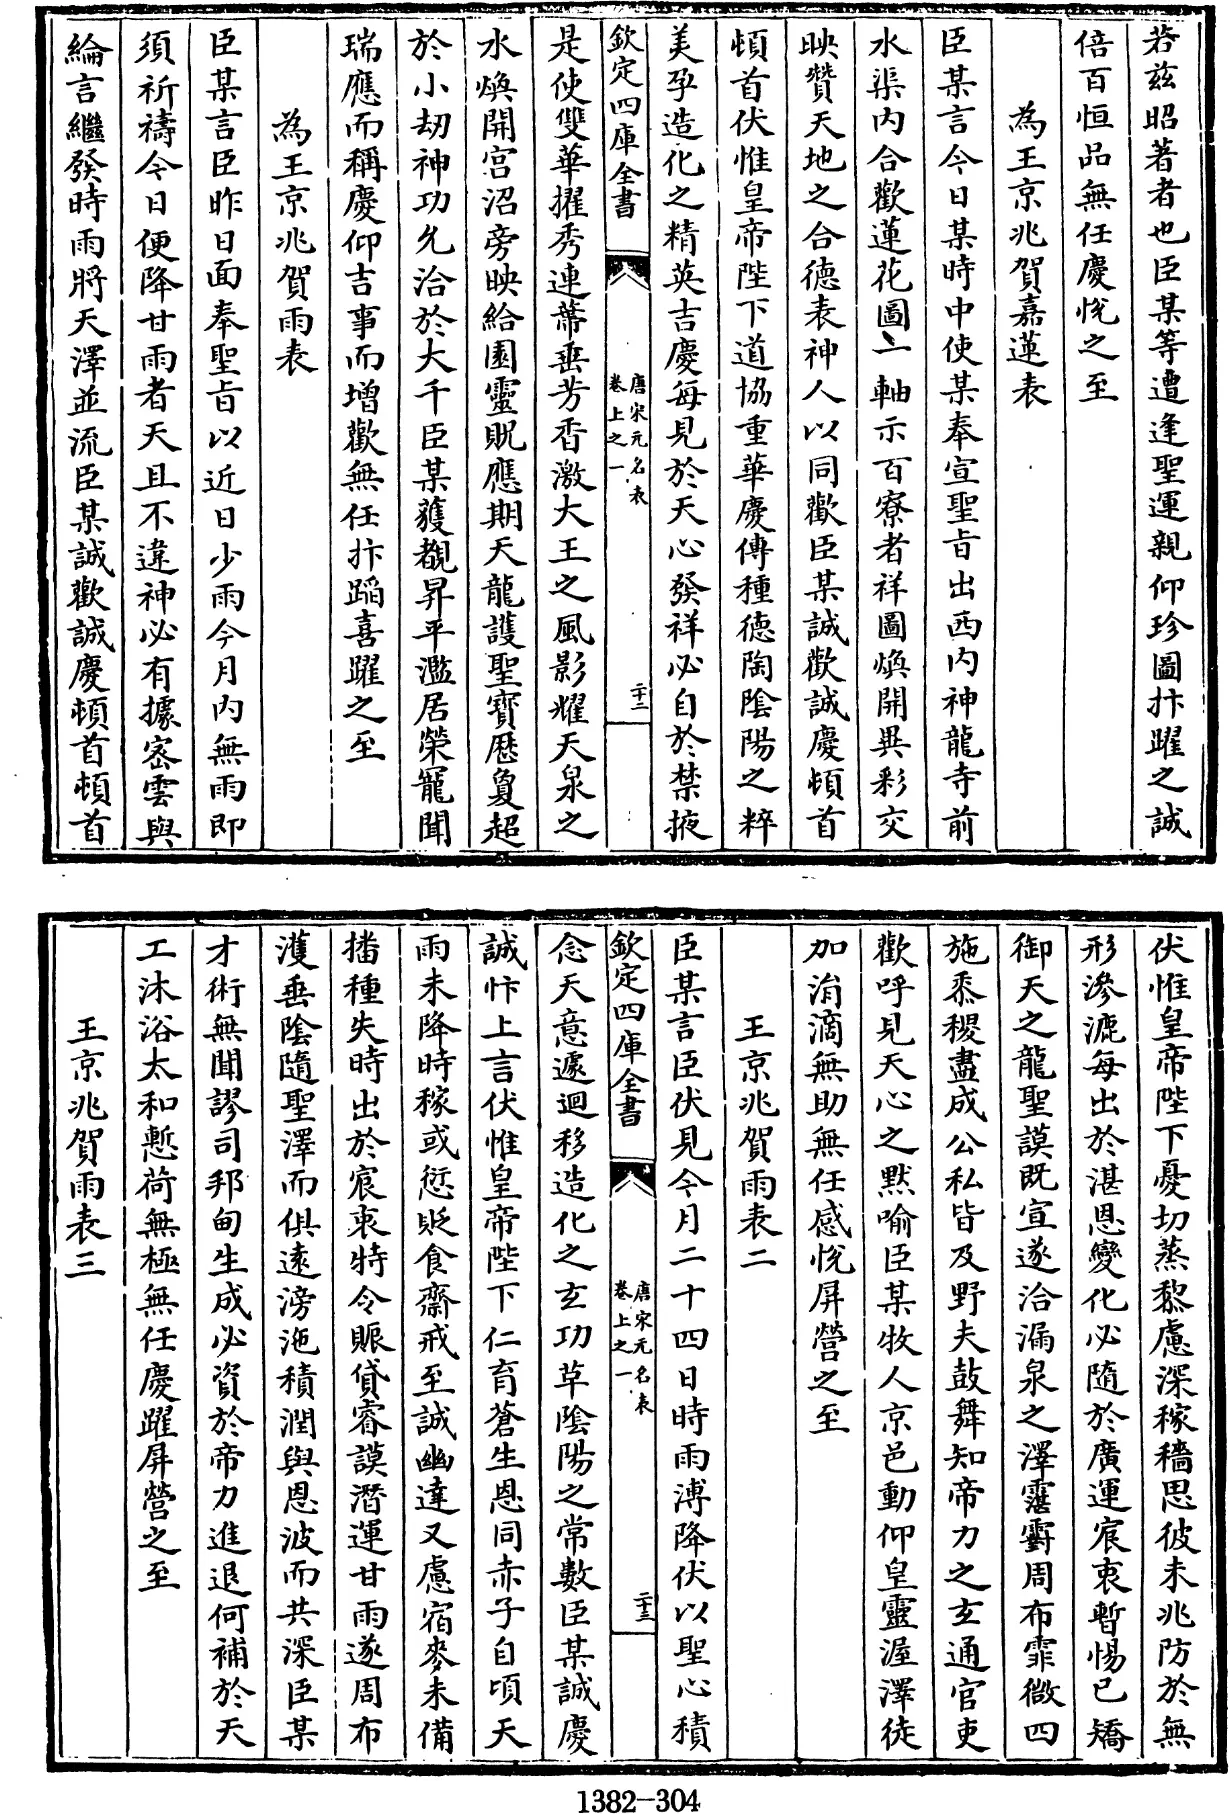 若兹昭著者也臣某等遭逢聖運親仰珍圖抃躍之誠
倍百恒品無任慶悅之至
為王京兆賀嘉蓮表
臣某言今日某時中使某奉宣聖旨出西内神龍寺前
水渠内合歡蓮花圖一軸示百寮者祥圖煥開異彩交
映贊天地之合德表神人以同歡臣某誠歡誠慶頓首
頓首伏惟皇帝陛下道協重華慶傳種德陶陰陽之粹
美孕造化之精英吉慶每見於天心發祥必自於禁掖
欽定四庫全書
唐宋元名表
卷上之一
二十二
是使雙華擢秀連蔕垂芳香激大王之風影耀天泉之
水煥開宫沼旁映給園靈貺應期天龍護聖寶歴敻超
於小刼神功允洽於大千臣某獲覩昇平濫居榮寵聞
瑞應而稱慶仰吉事而增歡無任抃蹈喜躍之至
為王京兆賀雨表
臣某言臣昨日面奉聖旨以近日少雨今月内無雨即
須祈禱今日便降甘雨者天且不違神必有據密雲與
綸言繼發時雨將天澤並流臣某誠歡誠慶頓首頓首
伏惟皇帝陛下憂切蒸黎慮深稼穡思彼未兆防於無
形滲漉每出於湛恩變化必隨於廣運宸衷暫惕已矯
御天之龍聖謨既宣遂洽漏泉之澤霮䨴周布霏微四
施黍稷盡成公私皆及野夫鼓舞知帝力之玄通官吏
歡呼見天心之黙喻臣某牧人京邑動仰皇靈渥澤徒
加涓滴無助無任感悅屏營之至
王京兆賀雨表二
臣某言臣伏見今月二十四日時雨溥降伏以聖心積
欽定四庫全書
唐宋元名表
卷上之一
二十三
念天意遽迴移造化之玄功革陰陽之常數臣某誠慶
誠忭上言伏惟皇帝陛下仁育蒼生恩同赤子自頃天
雨未降時稼或愆貶食齋戒至誠幽達又慮宿麥未備
播種失時出於宸衷特令賑貸睿謨潛運甘雨遂周布
濩垂陰隨聖澤而俱遠滂沲積潤與恩波而共深臣某
才術無聞謬司邦甸生成必資於帝力進退何補於天
工沐浴太和慙荷無極無任慶躍屏營之至
王京兆賀雨表三
1382-304